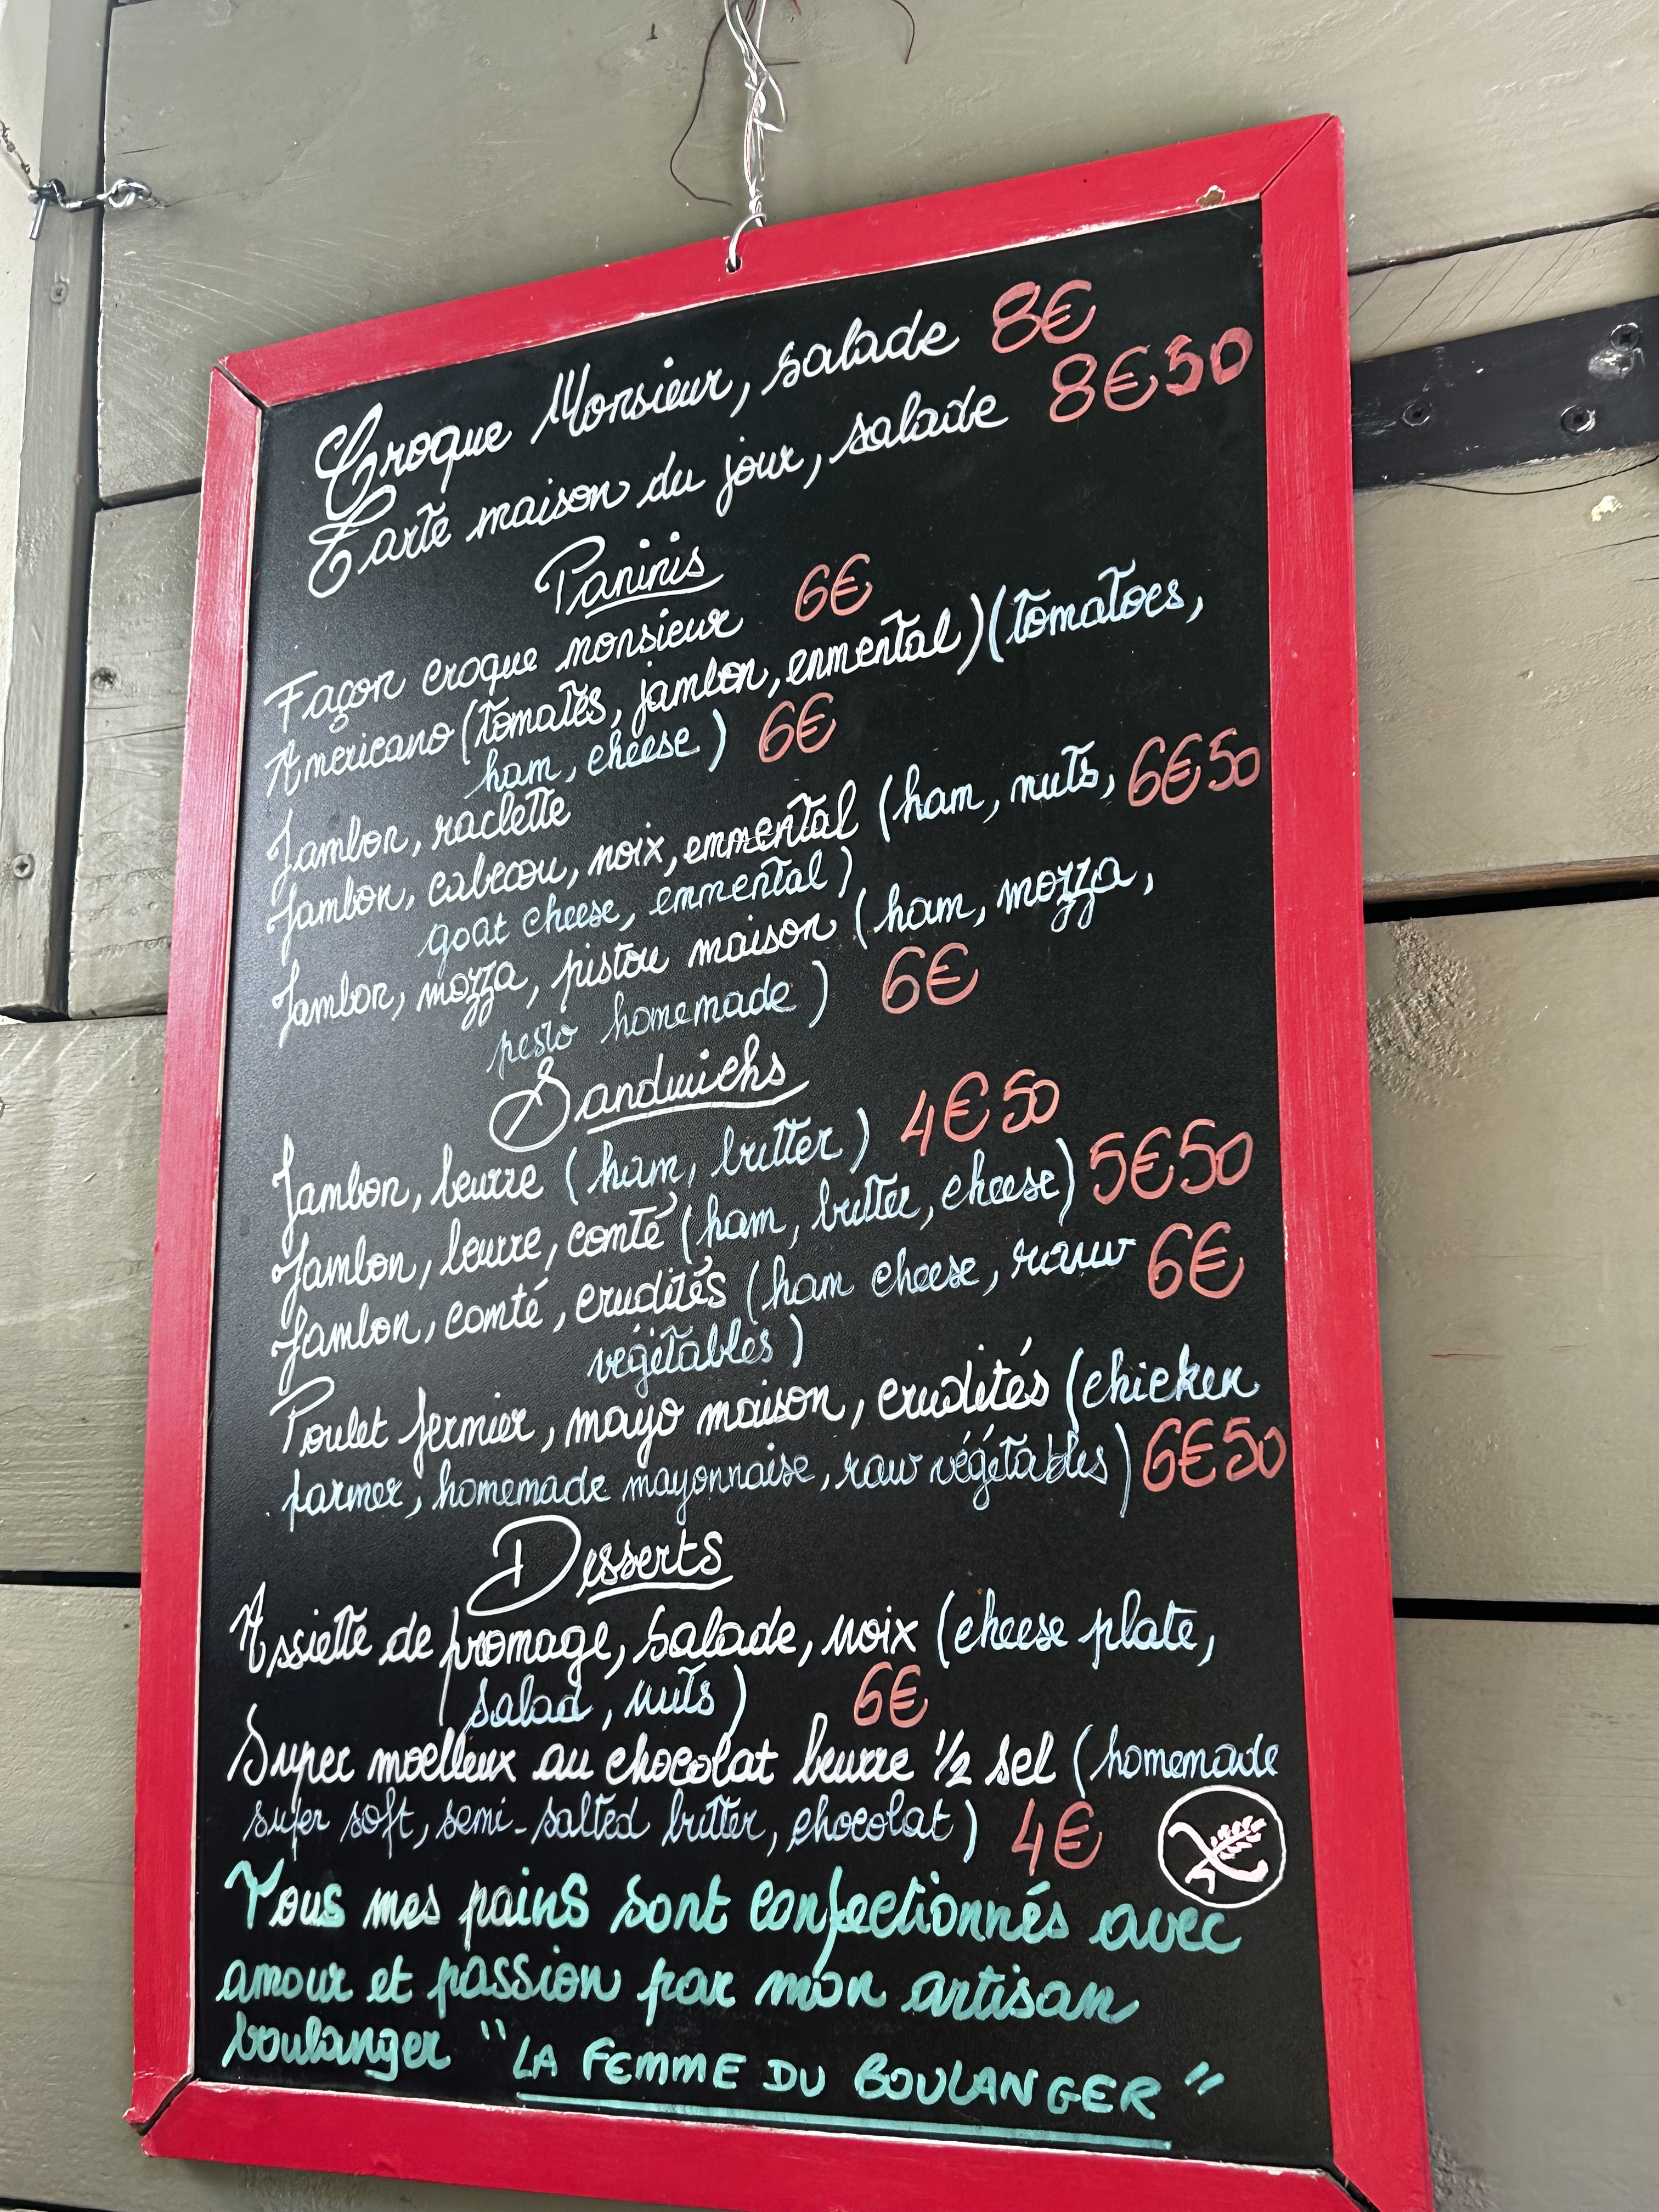 Croque Monsieur, salade 8€
Tarte maison du jour, salade 8€50
Paninis
Façon croque monsieur 6€
Americano (tomates, jambon, enmental) (tomatoes,
ham, cheese) 6€
Jambon, raclette
Jambon, cabécou, noix, emmental (ham, nuts, 6€50
goat cheese, emmental)
Jambon, mozza, pistou maison (ham, mozza,
pesto homemade) 6€
Sandwichs
Jambon, beurre (ham, butter) 4€50
Jambon, beurre, comté (ham, butter, cheese) 5€50
Jambon, comté, crudités (ham cheese, raw 6€
végétables)
Poulet fermier, mayo maison, crudités (chicken
farmer, homemade mayonnaise, raw végétables) 6€50
Desserts
Assiette de fromage, salade, noix (cheese plate,
salad, nuts) 6€
Super moelleux au chocolat beurre 1/2 sel (homemade
super soft, semi-salted butter, chocolat) 4€
Tous mes pains sont confectionnés avec
amour et passion par mon artisan
boulanger "LA FEMME DU BOULANGER"